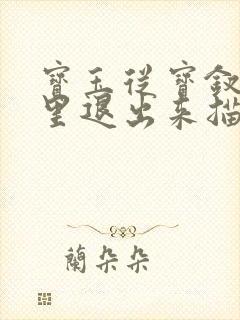 寶玉從寶釵
里退出來描
蘭朵朵